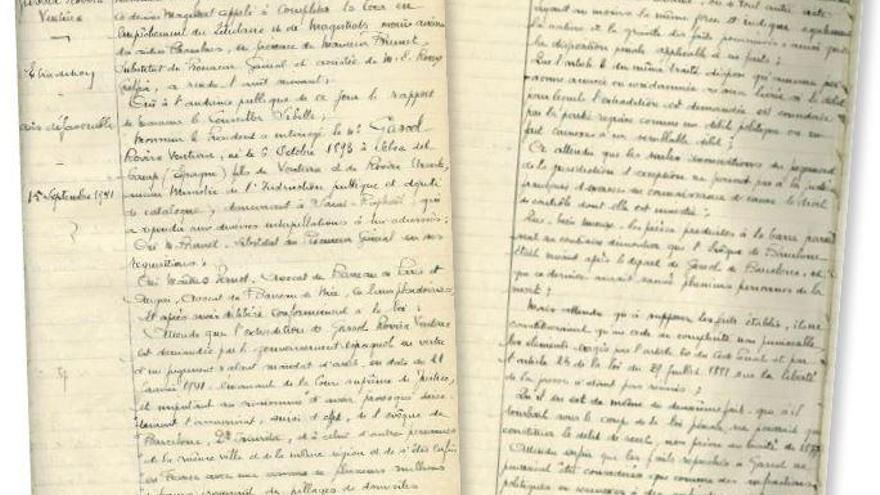 Gassol Rovira
Ventura
Extradition
avis défavorable
15 Septembre 1941
ce dernier Magistrat appelé à compléter la Cour en
empêchement du titulaire et de Magistrats moins anciens
des autres Chambres, en présence de Monsieur
Substitut du Procureur Général et assistée de M. E. Roux
Greffier, a rendu l'arrêt suivant;
Ouï à l'audience publique de ce jour le rapport
de Monsieur le Conseiller
Monsieur le Président a interrogé le Sr Gassol
Rovira Ventura, né le 6 Octobre 1893 à Selva del
Camp (Espagne) fils de Ventura et de Rovira
ancien Ministre de l'Instruction publique et député
de Catalogne, demeurant à Saint-Raphaël, qui
a répondu aux diverses interpellations à lui adressées;
Ouï M. Substitut du Procureur Général en ses
réquisitions;
Ouï Maîtres Avocat du Barreau de Paris et
Avocat du Barreau de Nice, en leurs plaidoiries,
et après avoir délibéré conformément à la loi;
Attendu que l'extradition de Gassol Rovira Ventura
est demandée par le Gouvernement espagnol en vertu
d'un jugement valant mandat d'arrêt en date du 21
janvier 1941 émanant de la Cour suprême de Justice,
et imputant au susnommé d'avoir provoqué
l'assassinat, suivi d'effet, de l'évêque de
Barcelone, Dr et à celui d'autres personnes
de la même ville et de la même région et de s'être enfui
en France avec une somme de plusieurs millions
de francs provenant de pillages de domiciles
ou tout autre acte
ayant au moins la même force et indique également
la nature et la gravité des faits poursuivis ainsi que
la disposition pénale applicable à ces faits;
Que l'article 6 du même traité dispose qu'aucune per-
sonne accusée ou condamnée ne sera livrée si le délit
pour lequel l'extradition est demandée est considéré
par la partie requise comme un délit politique ou un
fait connexe à un semblable délit;
Et attendu que les seules énonciations du jugement
de la juridiction d'exception ne peuvent pas à la
française d'exercer en connaissance de cause le droit
de contrôle dont elle est investie;
Que, bien mieux, les pièces produites à la barre parais-
sent au contraire démontrer que l'évêque de Barcelone
était mort après le départ de Gassol de Barcelone, et
que ce dernier aurait sauvé plusieurs personnes de la
mort;
Mais attendu qu'à supposer les faits établis, ils ne
constitueraient qu'un acte de complicité non punissable
les éléments exigés par l'article 60 du Code Pénal et par
l'article 23 de la loi du 29 juillet 1881 sur la liberté
de la presse n'étant pas réunis;
Qu'il en est de même du deuxième fait, que s'il
tombait sous le coup de la loi pénale, ne pourrait que
constituer le délit de recel, non prévu au traité de 1877
Attendu enfin que les faits reprochés à Gassol ne
pourraient être considérés que comme des infractions
politiques ou connexes à des